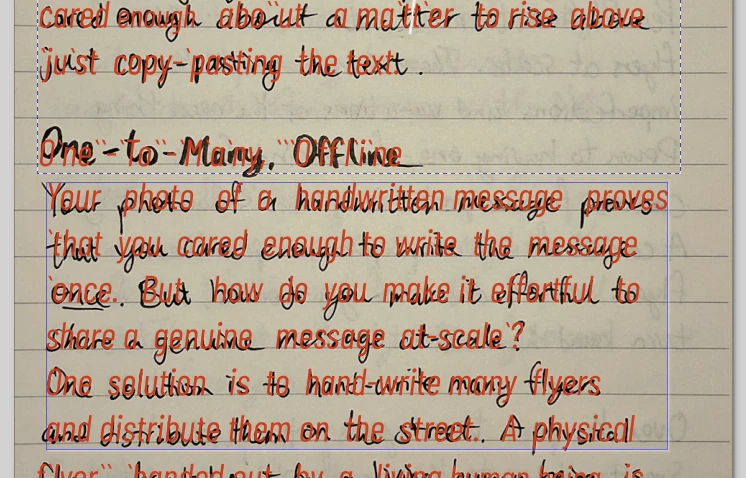 cared enough about a matter to rise above
just copy-pasting the text.
One-to-Many, Offline
Your photo of a handwritten message proves
that you cared enough to write the message
once. But how do you make it effortful to
share a genuine message at-scale?
One solution is to hand-write many flyers
and distribute them on the street. A physical
flyer handed out by a living human being is